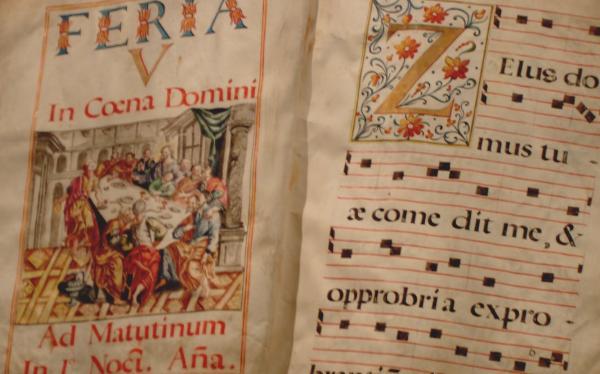 FERIA
V
In Cœna Domini
Ad Matutinum
In Noct. Aña.
Z
Elus do
mus tu -
æ come dit me, &
opprobria expro -